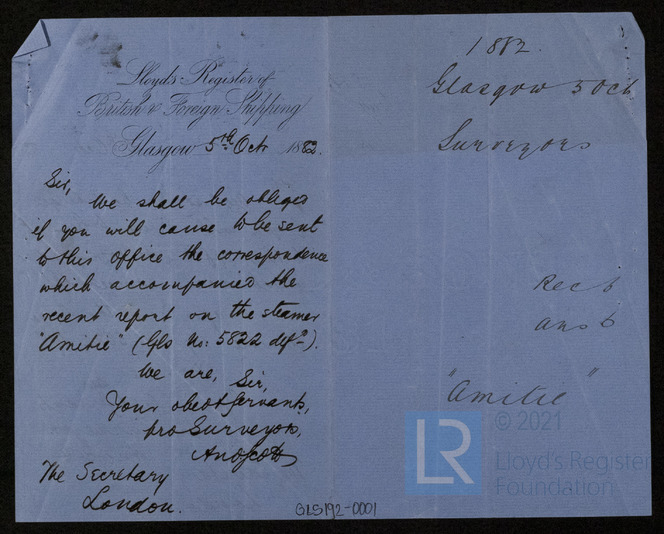 Lloyd's Register of
British & Foreign Shipping
Glasgow 5th Octr 1882.
Sir,
We shall be obliged
if you will cause to be sent
to this office the correspondence
which accompanied the
recent report on the steamer
"Amitié" (Gls No: 5822 defd).
We are, Sir,
Your obedt Servants,
pro Surveyors,
The Secretary
London.
1882.
Glasgow 5 Oct
Surveyors
Rec 6
Ans 6
"Amitie"
LR
© 2021
Lloyd's Register
Foundation
GLS192-0001